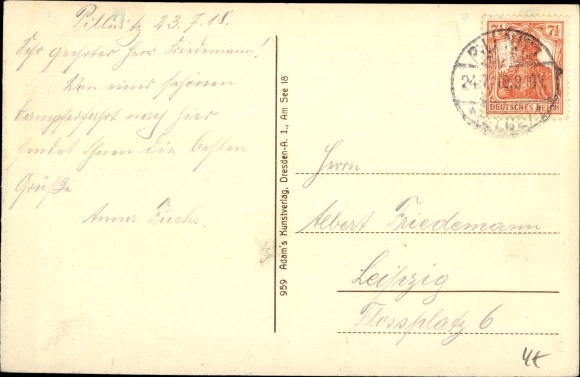 Pillnitz 23.7.18.
Sehr geehrter Herr Friedemann!
Von einer schönen
Dampferfahrt nach hier
sendet Ihnen die besten
Grüße
Anna Fuchs.
959 Adam's Kunstverlag, Dresden-A. 1., Am See 18
7½ 7½
DEUTSCHES REICH
PILLNITZ
24.7.18.9-10V
(ELBE)
Herrn
Albert Friedemann
Leipzig
Flossplatz 6
4€